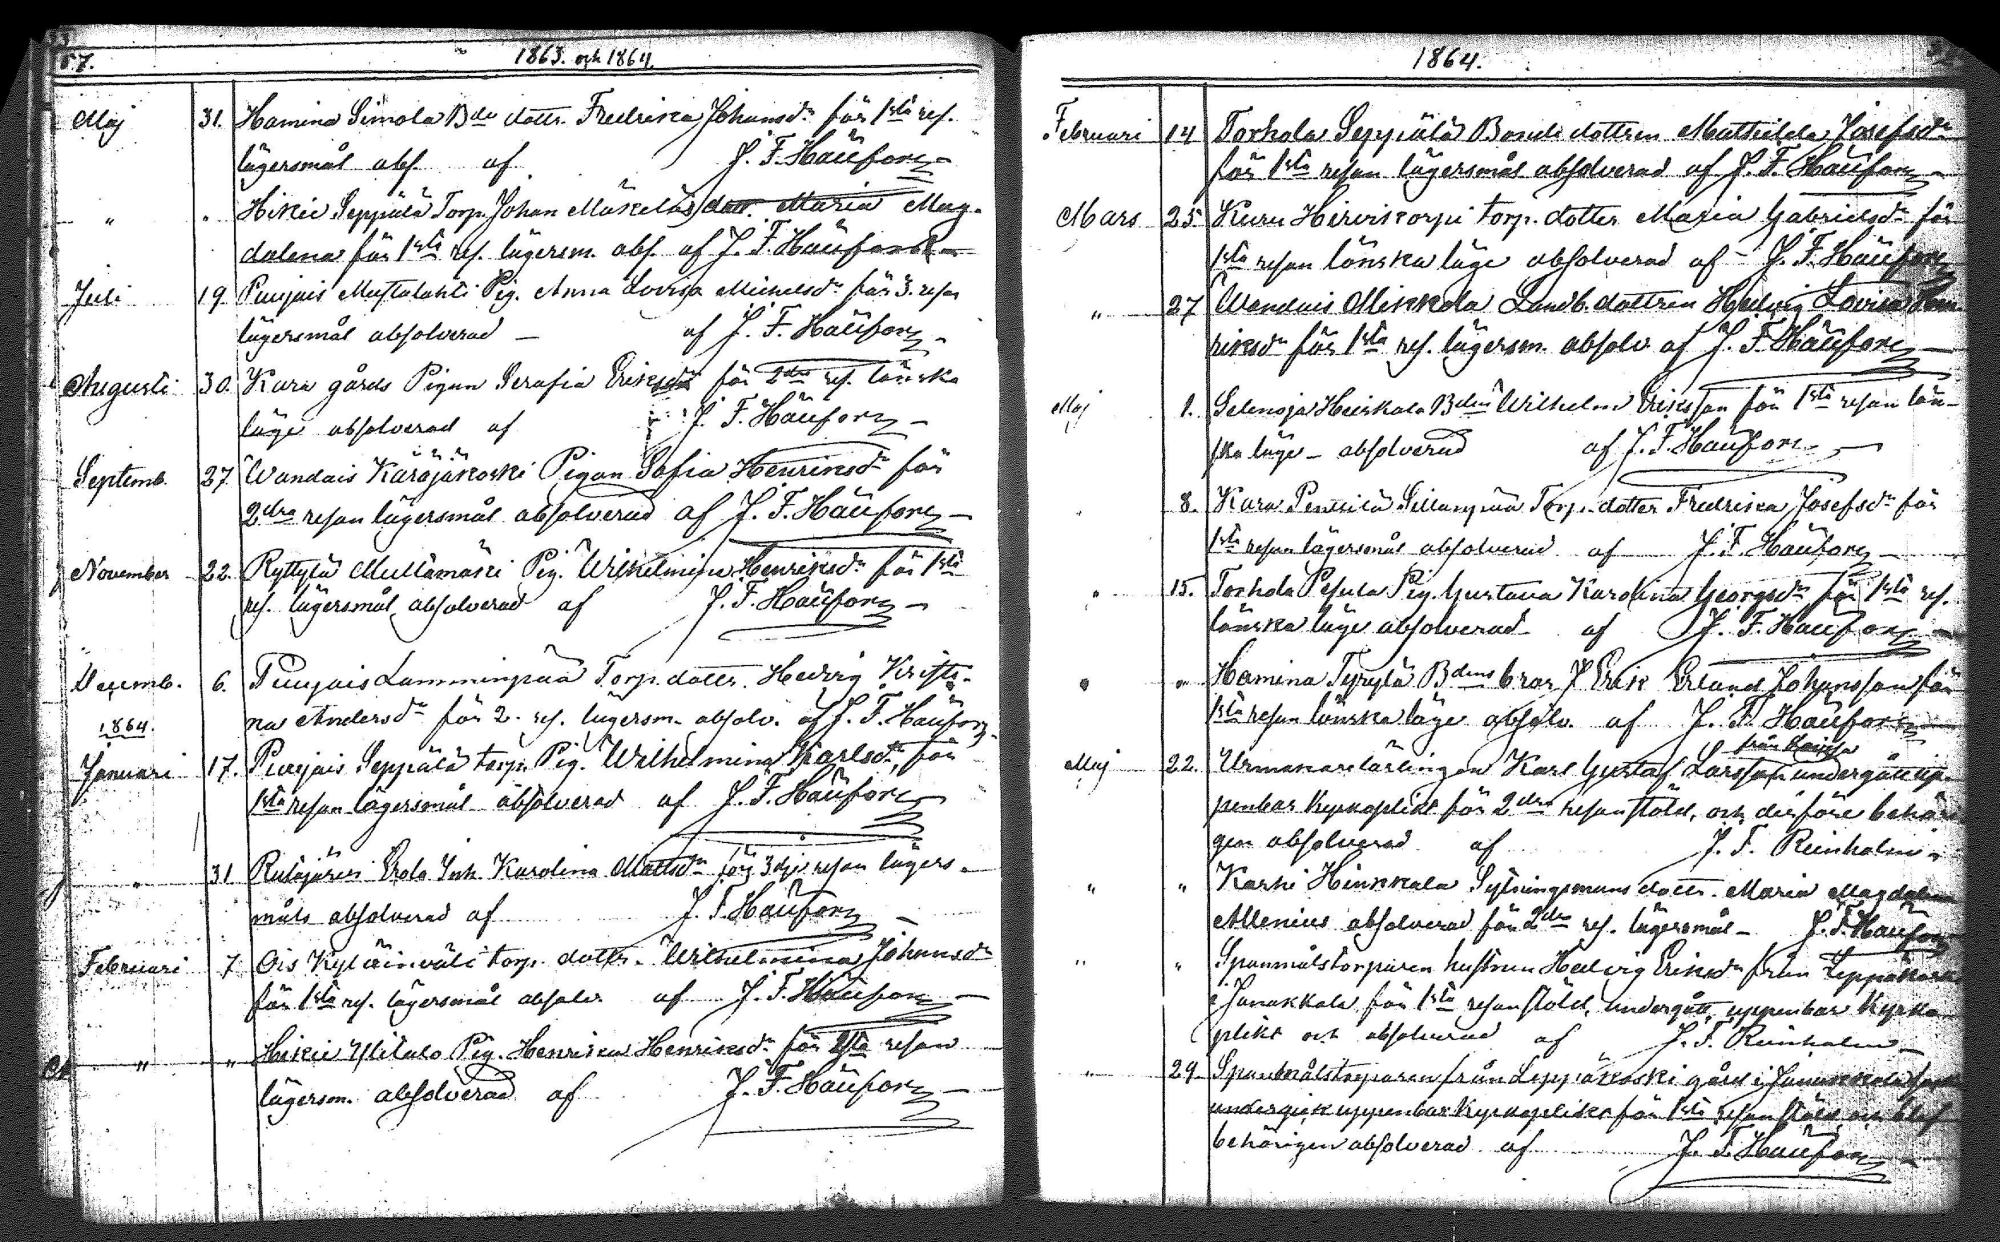 57.
1863. och 1864.
Maj 31. Hamina Simola Bde dottr. Fredrika Johansdr för 1sta res.
lägersmål abs. af J. F. Häüforss
" " Hikie Seppälä Torp. Johan Mäkeläs dott. Maria Mag-
dalena för 1sta res. lägersm. abs. af J. F. Häüforss
Juli 19. Puujais Mustalahti Pig. Anna Lovisa Michelsdr för 3. resan
lägersmål absolverad – af J. F. Häüforss
Augusti 30. Kara gårds Pigan Serafia Eriksdr för 2dra res. lönska
läge absolverad af J. F. Häüforss
Septemb. 27. Wandais Käräjäkoski Pigan Sofia Henriksdr för
2dra resan lägersmål absolverad af J. F. Häüforss
November 22. Ryttylä Mullämäki Pig. Wilhelmina Henriksdr för 1sta
res. lägersmål absolverad af J. F. Häüforss
Decemb. 6. Puujais Lamminpää Torp. dottr. Hedvig Kristi-
na Andersdr för 2. res. lägersm. absolv. af J. F. Häüforss
1864.
Januari 17. Puujais Seppälä torp. Pig. Wilhelmina Karlsdr för
1sta resan lägersmål absolverad af J. F. Häüforss
" 31 Rutajärvi Erola Inh. Karolina Mattsdr för 3dje resan lägers-
måls absolverad af J. F. Häüforss
Februari 7 Ois Kylärinväli torp. dottr. Wilhelmina Johansdr
för 1sta res. lägersmål absolv. af J. F. Häüforss
" " Hikie Ylitalo Pig. Henrika Henriksdr för resan
lägersm. absolverad af J. F. Häüforss
1864.
Februari 14 Torhola Seppälä Bonde dottren Mathilda Josefsdr
för 1sta resan lägersmål absolverad af J. F. Häüforss
Mars 25 Kuru Hirvikorpi torp. dotter Maria Gabrielsdr för
1sta resan lönska läge absolverad af – J. F. Häüforss
" 27 Wandais Mikkola Landb. dottren Hedvig Lovisa Hen-
riksdr för 1sta res. lägersm. absolv af J. F. Häüforss
Maj 1. Selenoja Heikala Bden Wilhelm Eriksson för 1sta resan lön-
ska läge – absolverad af J. F. Häüforss
" 8. Kara Penttilä Sillanpää Torp. dotter Fredrika Josefsdr för
1sta resan lägersmål absolverad af J. F. Häüforss
" 15. Torhola Pesula Pig. Gustava Karolina Georgsdr för 1sta res.
lönska läge absolverad af J. F. Häüforss
" " Hamina Tyrylä Bdens bror Erik Erland Johansson för
1sta resan lönska läge absolv. af J. F. Häüforss
från
Maj 22. Urmakarelärlingen Karl Gustaf Larsson undergått up-
penbar kyrkoplikt för 2dra resan stöld, och derföre behöri-
gen absolverad af J. F. Reinholm
" " Karhi Hinkkala Sytningsmans dottr. Maria Magdalena
Allenius absolverad för 2dra res. lägersmål – J. F. Häüforss
" " Spanmålstorparen hustrun Hedvig Eriksdr från Leppäkoski
i Janakkala för 1sta resan stöld, undergått uppenbar kyrko-
plikt och absolverad af J. F. Reinholm
" 29 Spanmålstorparen från Leppäkoski gård i Janakkala
undergick uppenbar kyrkoplikt för 1sta resan stöld och blef
behörigen absolverad af J. F. Häüforss